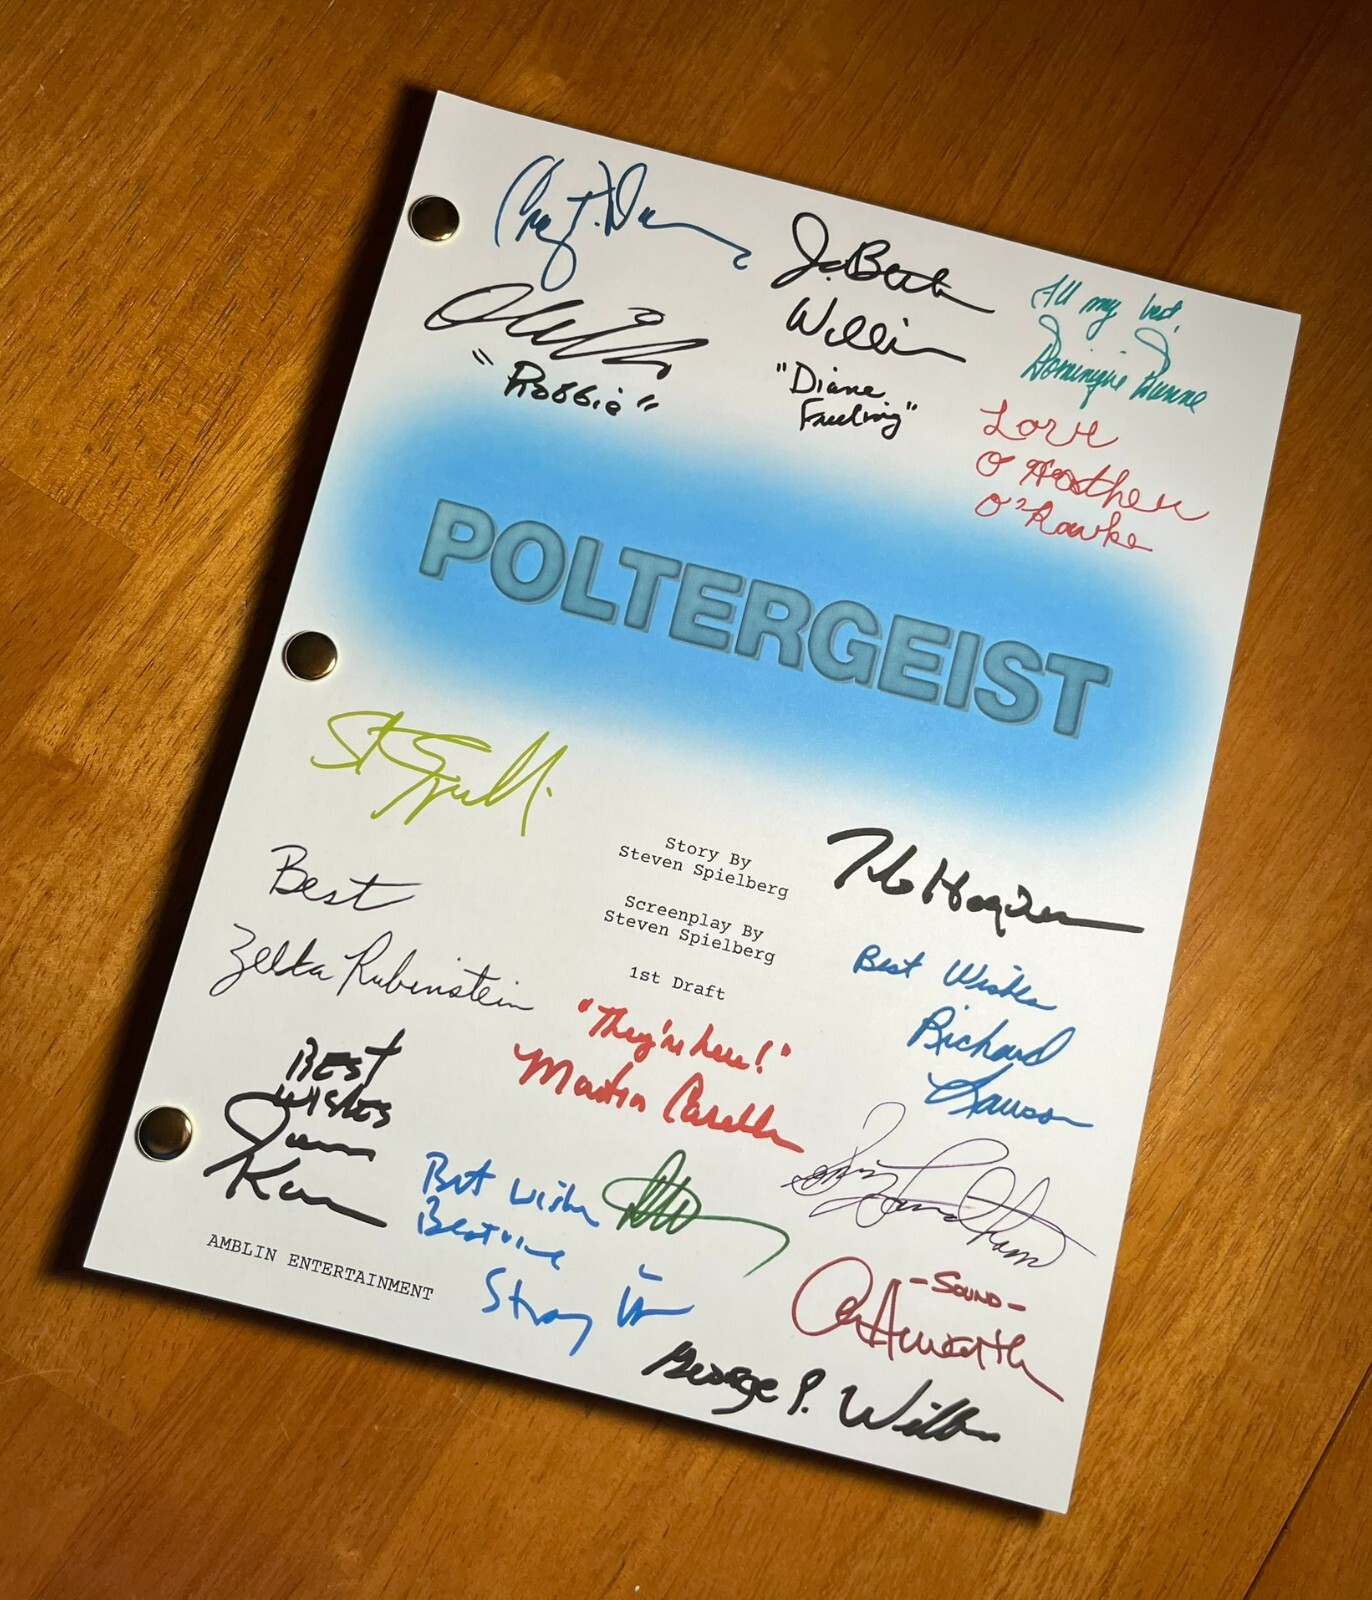 Craig T. Nelson
JoBeth
Williams
"Diane
Freeling"
"Robbie"
All my best,
Dominique Dunne
Love
Heather
O'Rourke
POLTERGEIST
Story By
Steven Spielberg
Screenplay By
Steven Spielberg
1st Draft
Tobe Hooper
Best
Zelda Rubinstein
Best Wishes
Richard
Lawson
"They're here!"
Martin Casella
BEST
WISHES
James
Karen
Best wishes
Beatrice
Straight
- SOUND -
George P. Wilbur
AMBLIN ENTERTAINMENT